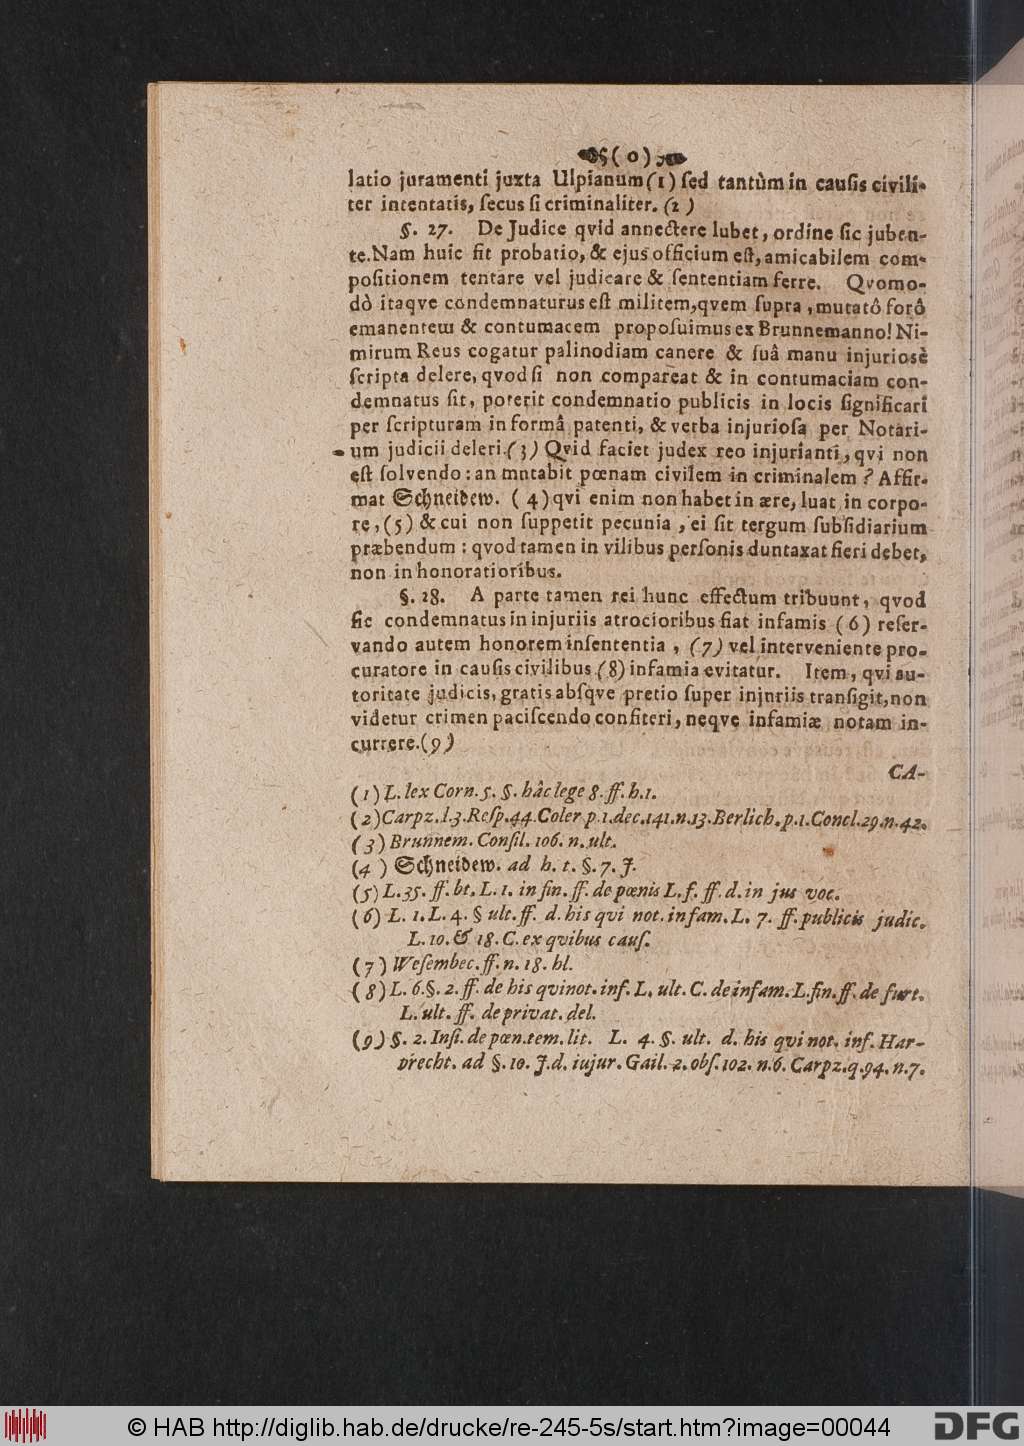 ( o )
latio juramenti juxta Ulpianum (1) ſed tantùm in cauſis civili-
ter intentatis, ſecus ſi criminaliter. (2)
§. 27. De Judice qvid annectere lubet, ordine ſic juben-
te. Nam huic fit probatio, & ejus officium eſt, amicabilem com-
poſitionem tentare vel judicare & ſententiam ferre. Qvomo-
dò itaqve condemnaturus eſt militem, qvem ſupra, mutatô forô
emanentem & contumacem propoſuimus ex Brunnemanno! Ni-
mirum Reus cogatur palinodiam canere & ſuâ manu injuriosè
ſcripta delere, qvod ſi non compareat & in contumaciam con-
demnatus ſit, poterit condemnatio publicis in locis ſignificari
per ſcripturam in formâ patenti, & verba injurioſa per Notari-
um judicii deleri. (3) Qvid faciet judex reo injurianti, qvi non
eſt ſolvendo: an mutabit pœnam civilem in criminalem? Affir-
mat Schneidew. (4) qvi enim non habet in ære, luat in corpo-
re, (5) & cui non ſuppetit pecunia, ei ſit tergum ſubſidiarium
præbendum: qvod tamen in vilibus perſonis duntaxat fieri debet,
non in honoratioribus.
§. 28. A parte tamen rei hunc effectum tribuunt, qvod
ſic condemnatus in injuriis atrocioribus fiat infamis (6) reſer-
vando autem honorem in ſententia, (7) vel interveniente pro-
curatore in cauſis civilibus (8) infamia evitatur. Item, qvi au-
toritate judicis, gratis abſqve pretio ſuper injuriis tranſigit, non
videtur crimen paciſcendo confiteri, neqve infamiæ notam in-
currere. (9)
CA-
(1) L. lex Corn. 5. §. hâc lege 8. ff. h. t.
(2) Carpz. l. 3. Reſp. 44. Coler p. 1. dec. 141. n. 13. Berlich. p. 1. Concl. 29. n. 42.
(3) Brunnem. Conſil. 106. n. ult.
(4) Schneidew. ad h. t. §. 7. J.
(5) L. 35. ff. ht. L. 1. in fin. ff. de pœnis L. f. ff. d. in jus voc.
(6) L. 1. L. 4. § ult. ff. d. his qvi not. infam. L. 7. ff. publicis judic.
L. 10. & 18. C. ex qvibus cauſ.
(7) Weſembec. ff. n. 18. hl.
(8) L. 6. §. 2. ff. de his qvi not. inf. L. ult. C. de infam. L. fin. ff. de furt.
L. ult. ff. de privat. del.
(9) §. 2. Inſt. de pœn. tem. lit. L. 4. §. ult. d. his qvi not. inf. Har-
precht. ad §. 10. J. d. iujur. Gail. 2. obſ. 102. n. 6. Carpz. q. 94. n. 7.
© HAB http://diglib.hab.de/drucke/re-245-5s/start.htm?image=00044
DFG